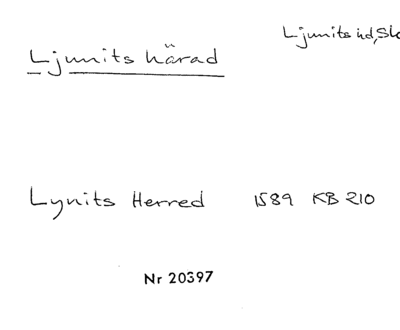 Ljunits hd, Sk
Ljunits härad
Lynits Herred 1589 KB 210
Nr 20397